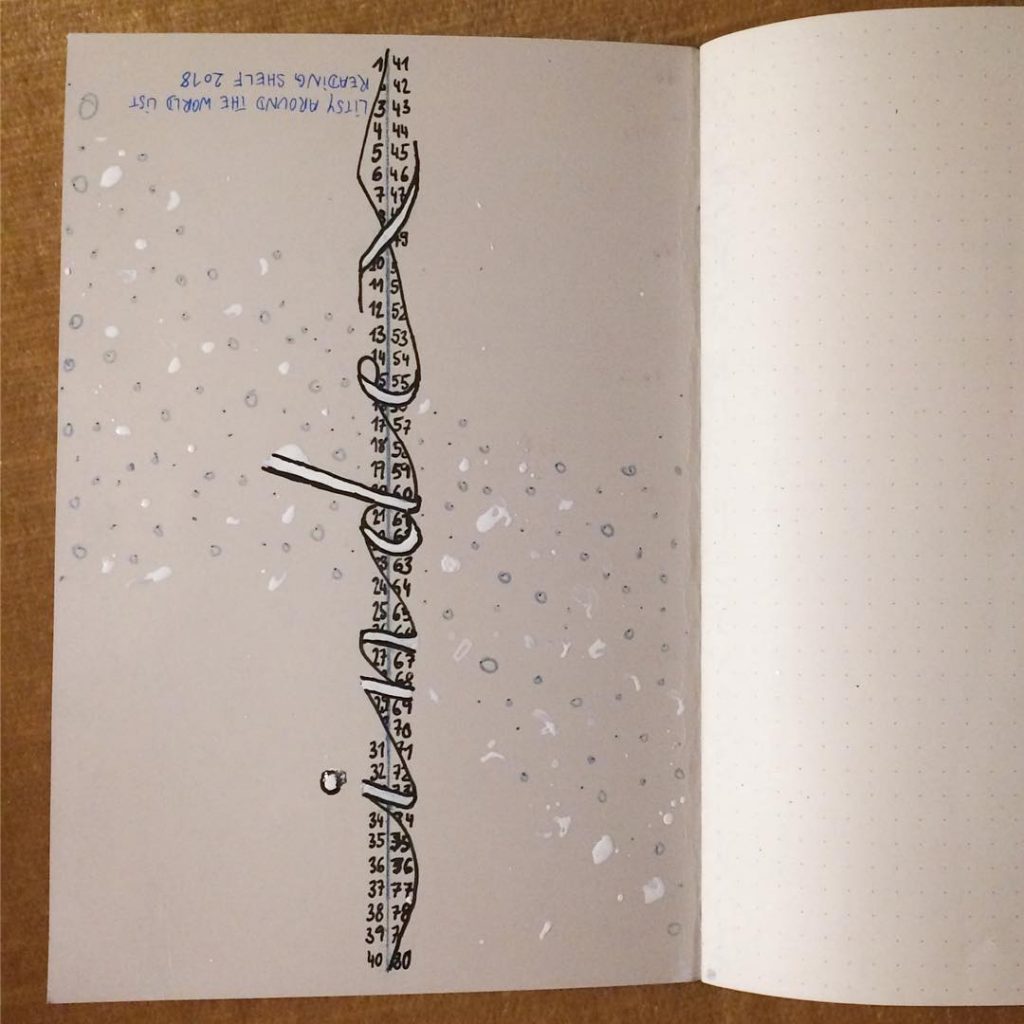 LITSY AROUND THE WORLD LIST
READING SHELF 2018
index
1 41
42
3 43
4 44
5 45
6 46
7 47
8
49
10
11
12 52
13 53
14 54
55
17 57
18
19 59
60
21 61
63
24 64
25 65
66
27 67
68
29 69
70
31 71
32 72
73
34 74
35 75
36 76
37 77
38 78
39
40 80